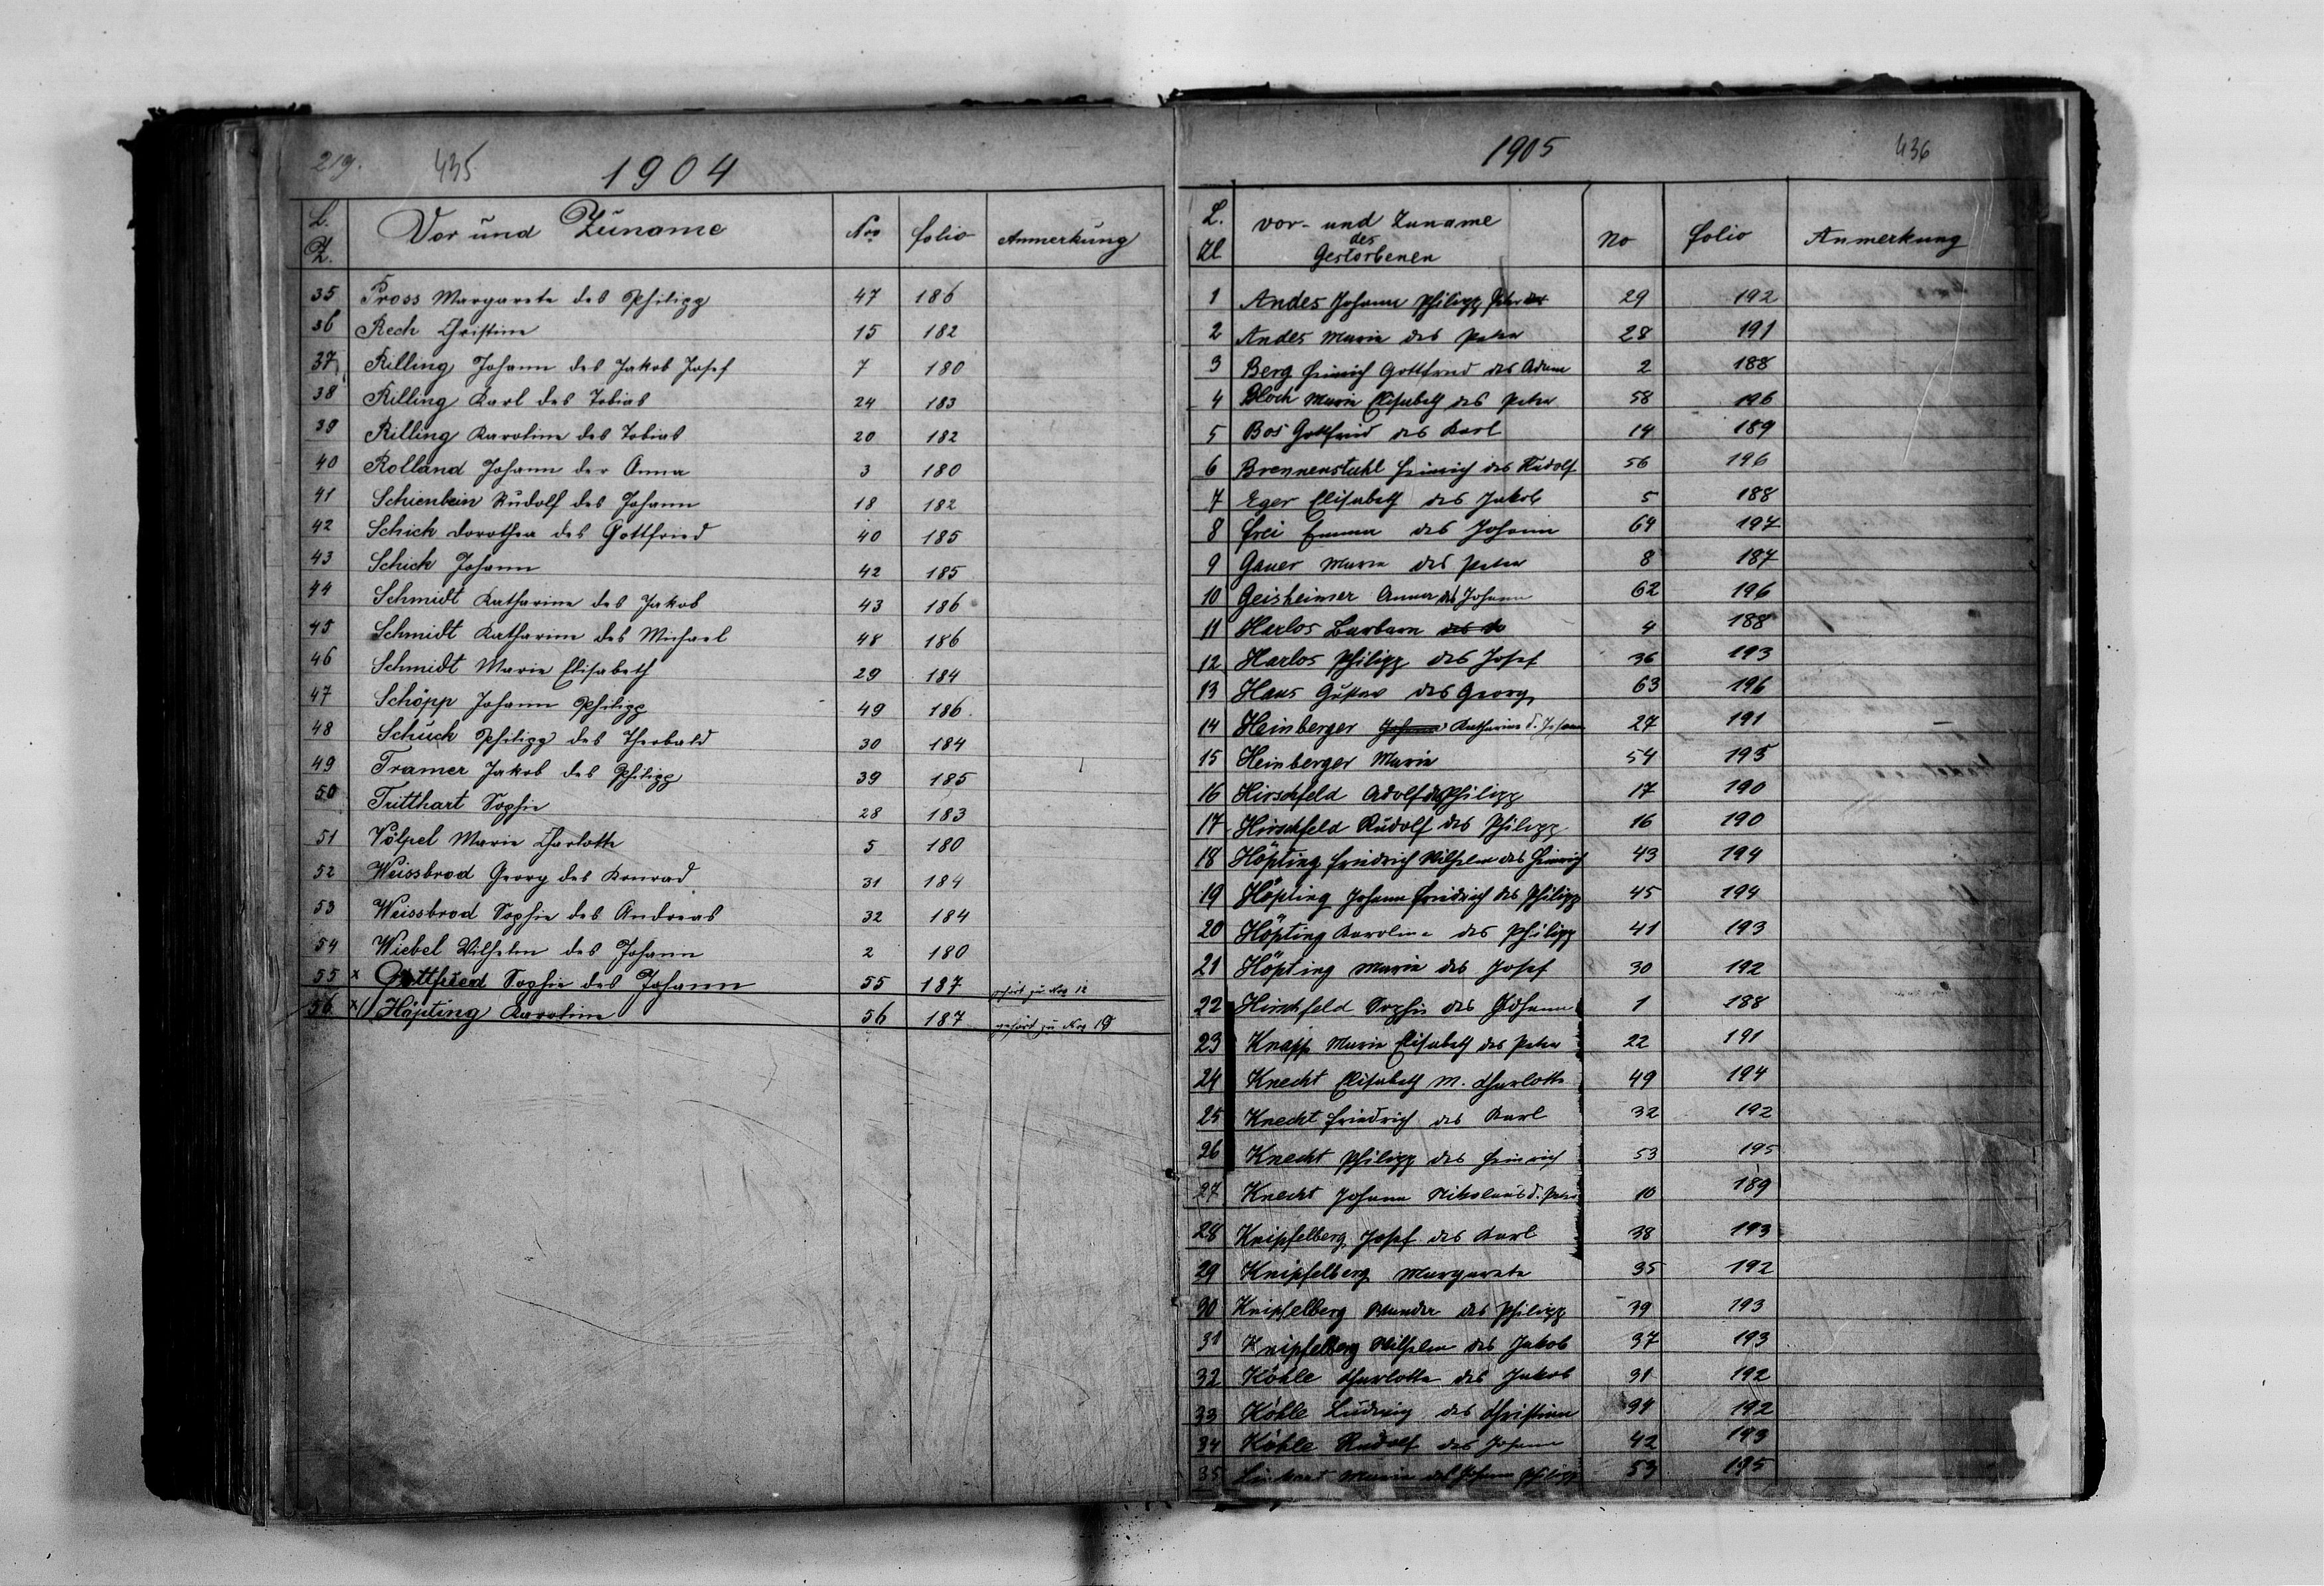 219. 435 1904
L. Z. Vor und Zuname Nro folio Anmerkung
35 Pross Margarete des Philipp 47 186
36 Rech Christine 15 182
37 Rilling Johann des Jakob Josef 7 180
38 Rilling Karl des Tobias 24 183
39 Rilling Karoline des Tobias 20 182
40 Rolland Johann der Anna 3 180
41 Schienbein Rudolf des Johann 18 182
42 Schick Dorothea des Gottfried 40 185
43 Schick Johann 42 185
44 Schmidt Katharina des Jakob 43 186
45 Schmidt Katharina des Michael 48 186
46 Schmidt Marie Elisabeth 29 184
47 Schöpp Johann Philipp 49 186
48 Schuck Philipp des Theobald 30 184
49 Tramer Jakob des Philipp 39 185
50 Tritthart Sophie 28 183
51 Völpel Marie Charlotte 5 180
52 Weissbrod Georg des Konrad 31 184
53 Weissbrod Sophie des Andreas 32 184
54 Wiebel Wilhelm des Johann 2 180
55 x Gottfried Sophie des Johann 55 187 gehört zu Nro 12
56 x Höpting Karoline 56 187 gehört zu Nro 19
1905 436
L. Zl vor- und Zuname des Gestorbenen No folio Anmerkung
1 Andes Johann Philipp Peter des 29 192
2 Andes Marie des Peter 28 191
3 Berg Heinrich Gottfried des Adam 2 188
4 Bloch Marie Elisabeth des Peter 58 196
5 Bos Gottfried des Karl 14 189
6 Brennenstuhl Heinrich des Rudolf 56 196
7 Eger Elisabeth des Jakob 5 188
8 Frei Emma des Johann 69 197
9 Gauer Marie des Peter 8 187
10 Geisheimer Anna des Johann 62 196
11 Harlos Barbara des 4 188
12 Harlos Philipp des Josef 36 193
13 Haus Gustav des Georg 63 196
14 Heinberger Johann Katharina d. Johann 27 191
15 Heinberger Marie 54 195
16 Hirschfeld Adolf des Philipp 17 190
17 Hirschfeld Rudolf des Philipp 16 190
18 Höpting Friedrich Wilhelm des Heinrich 43 194
19 Höpting Johann Friedrich des Philipp 45 194
20 Höpting Karoline des Philipp 41 193
21 Höpting Marie des Josef 30 192
22 Hirschfeld Sophie des Johann 1 188
23 Knapp Marie Elisabeth des Peter 22 191
24 Knecht Elisabeth M. Charlotte 49 194
25 Knecht Friedrich des Karl 32 192
26 Knecht Philipp des Heinrich 53 195
27 Knecht Johann Nikolaus d. Peter 10 189
28 Knipfelberg Josef des Karl 38 193
29 Knipfelberg Margarete 35 192
30 Knipfelberg des Philipp 39 193
31 Knipfelberg Wilhelm des Jakob 37 193
32 Köhle Charlotte des Jakob 31 192
33 Köhle Ludwig des Christian 34 192
34 Köhle Rudolf des Johann 42 193
35 Linhart Marie des Johann Philipp 53 195